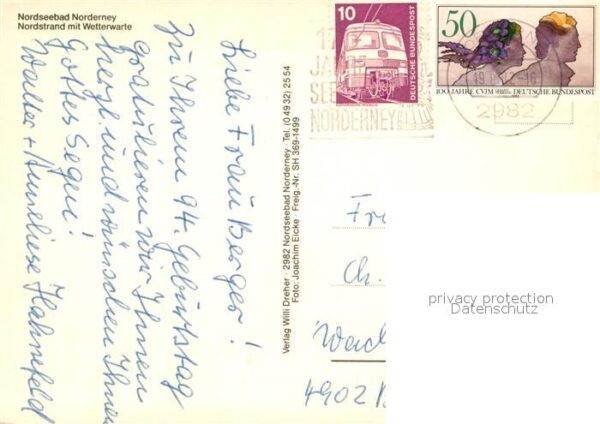 Nordseebad Norderney
Nordstrand mit Wetterwarte
Liebe Frau Berger!
Zu Ihrem 94. Geburtstag
gratulieren wir Ihnen
herzl. und wünschen Ihnen
Gottes Segen!
Walter + Anneliese Hahnefeld
Verlag Willi Dreher · 2982 Nordseebad Norderney · Tel. (0 49 32) 25 54
Foto: Joachim Eicke · Freig.-Nr. SH 369-1499
10
DEUTSCHE BUNDESPOST
50
100 JAHRE CVJM DEUTSCHE BUNDESPOST
NORDERNEY
2982
Fr
Ch.
4902 B
privacy protection
Datenschutz